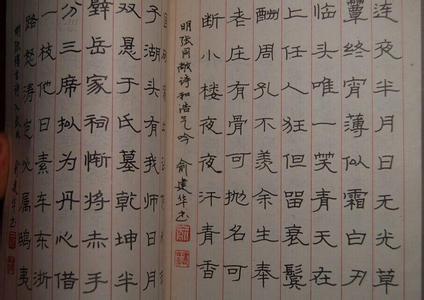 连夜半月日无光草
簟终宵薄似霜白刃
临头唯一笑青天在
上任人狂但留衰鬓
酬周孔不羡余生奉
老庄有骨可抛名可
断小楼夜夜汗青香
明张同敞诗和浩气吟 俞建华书
子湖头有我师日月
双悬于氏墓乾坤半
壁岳家祠惭将赤手
分三席拟为丹心借
一枝他日素车东浙
路怒涛岂必属鸱夷
明张煌言诗入武林